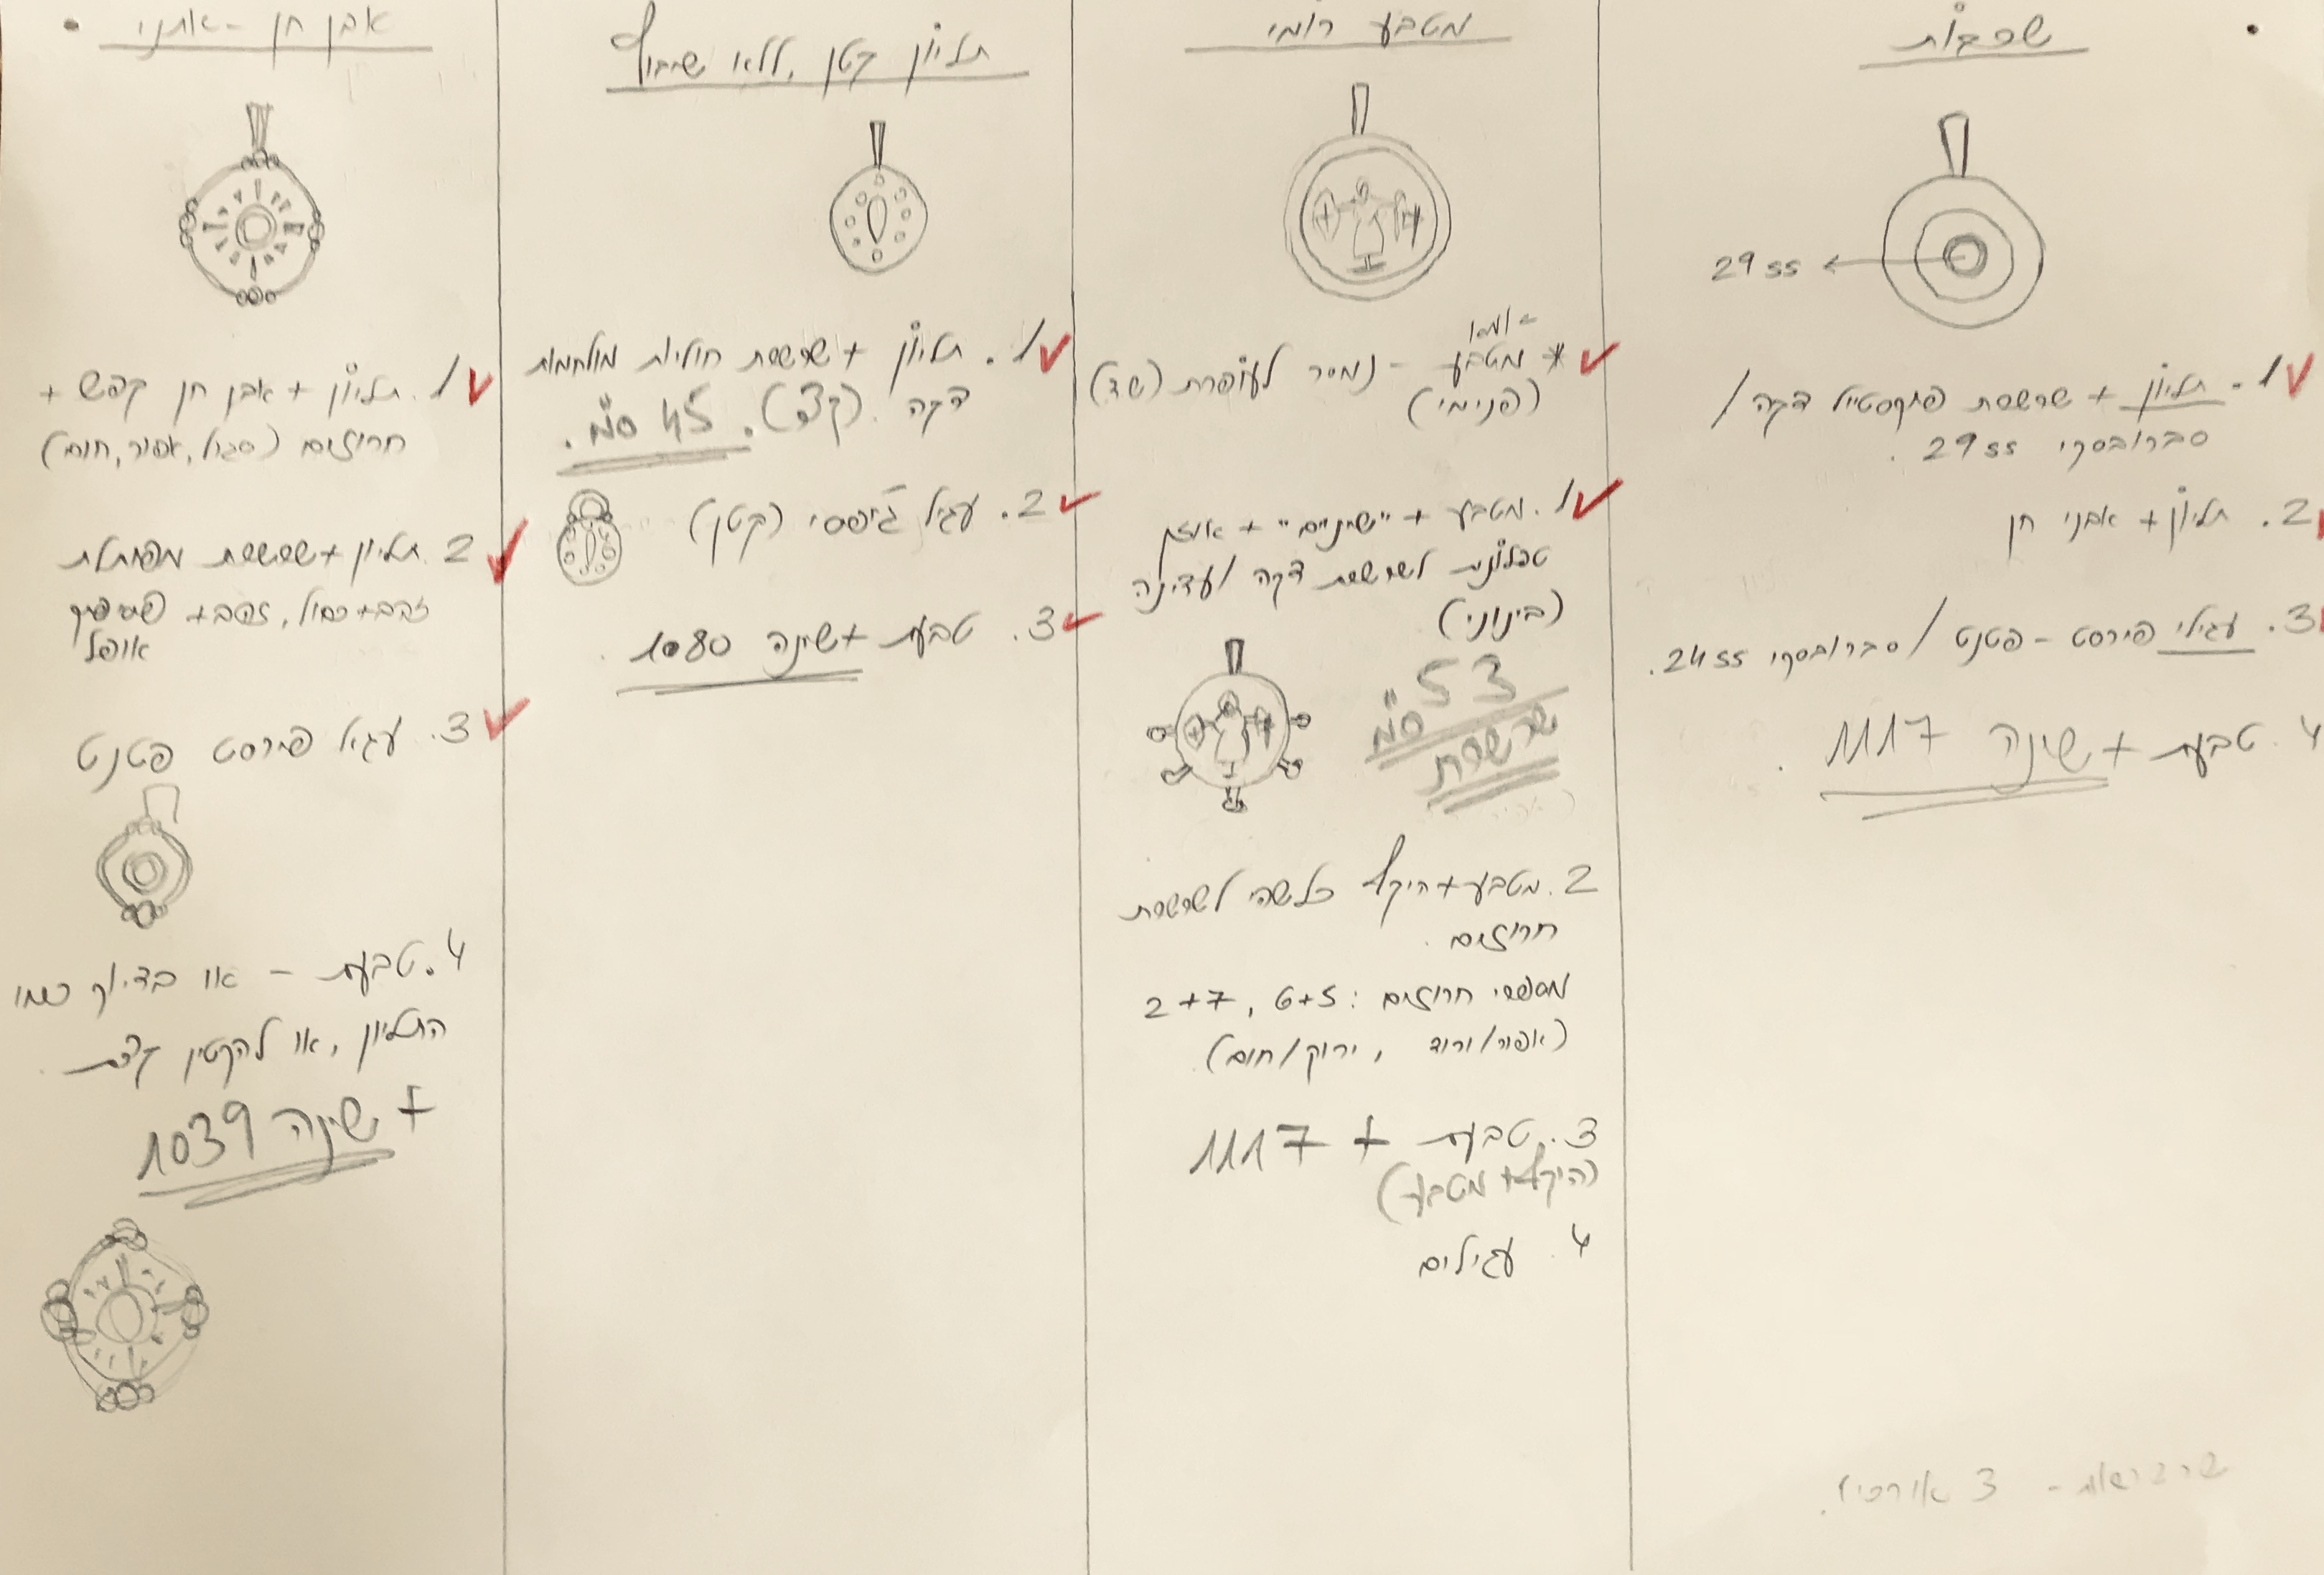 שכבות
29 ss
1. תליון + שרשרת פתקסטייל דקה /
סברובסקי 29 ss .
2. תליון + אבני חן
3. עגילי פירסט - פטנט / סברובסקי 24 ss.
4. טבעת + שינה 1117 .
שרשראות - 3
מטבע רומי
* מטבע - נמסר לעופרת (שד)
(פנימי)
1. מטבע + "שיניים" + אוזן
טבלונית לשרשרת דקה / עדינה
(בינוני)
53 ס"מ
שרשרת
2. מטבע + היקף כלשהי לשרשרת
חרוזים.
מספרי חרוזים: 6+5 , 2+7
(אפור/ורוד , ירוק/חום)
3. טבעת + 1117
(היקף + מטבע)
4. עגילים
תליון קטן, ללא שיבוץ
1. תליון + שרשרת חוליות מולחמות
דקה. (קצ). 45 ס"מ.
2. עגיל ג'יפסי (קטן)
3. טבעת + שינה 1080 .
אבן חן - אתני
1. תליון + אבן חן קפש +
חרוזים (סגול, אפור, חום)
2. תליון + שרשרת מפותלת
זהב + כחול, זהב +
אופל
3. עגיל פירסט פטנט
4. טבעת - או בדיוק כמו
התליון, או להקטין קצת.
+ שינה 1039